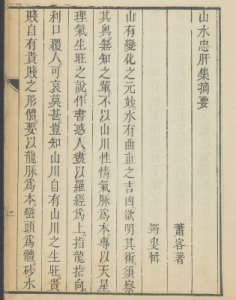 山水忠肝集摘要
蕭客著
山有變化之元妙水有曲直之吉凶欲明其術須察
其奧無知之輩不以山川性情氣脉爲本專以天星
理氣生旺之說作書惑人盡以羅經格上指龍指向
利口覆人可哀莫甚豈知山川自有山川之生旺貴
賤自有貴賤之形體要以龍脉爲本巒頭爲體砂水